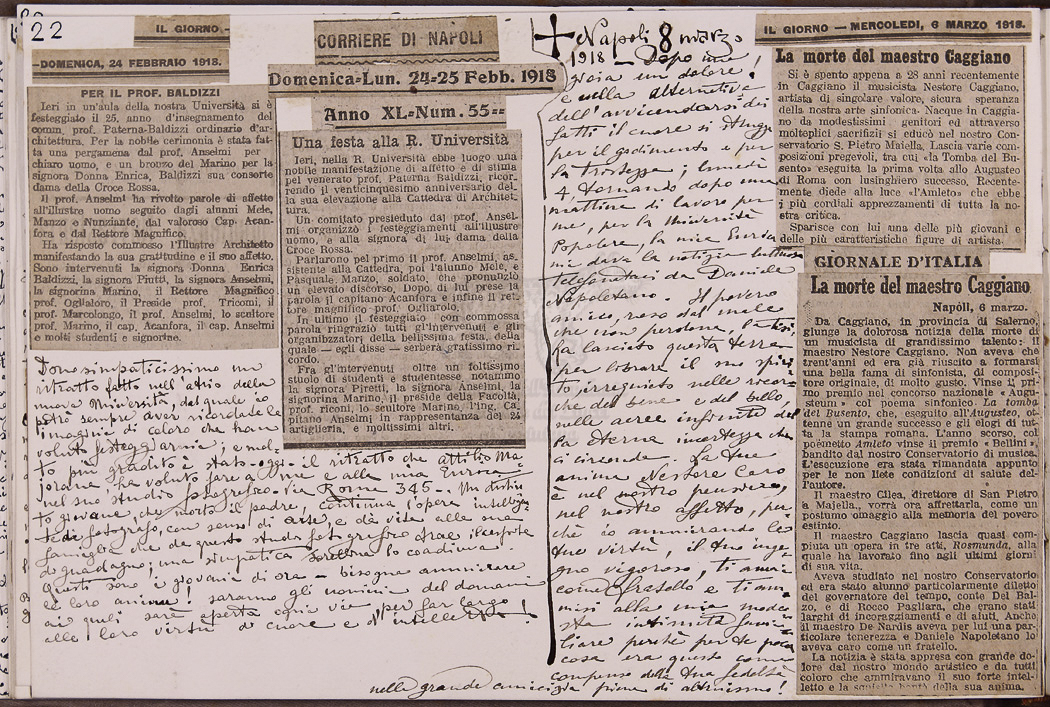 22
IL GIORNO -
- DOMENICA, 24 FEBBRAIO 1918.
PER IL PROF. BALDIZZI
Ieri in un'aula della nostra Università si è
festeggiato il 25. anno d'insegnamento del
comm. prof. Paterna-Baldizzi ordinario d'ar-
chitettura. Per la nobile cerimonia è stata fat-
ta una pergamena dal prof. Anselmi per il
chiaro uomo, e un bronzo del Marino per la
signora Donna Enrica, Baldizzi sua consorte
dama della Croce Rossa.
Il prof. Anselmi ha rivolto parole di affetto
all'illustre uomo seguito dagli alunni Mele,
Manzo e Nunziante, dal valoroso Cap. Acan-
fora e dal Rettore Magnifico.
Ha risposto commosso l'Illustre Architetto
manifestando la sua gratitudine e il suo affetto.
Sono intervenuti la signora Donna Enrica
Baldizzi, la signora Piutti, la signora Anselmi,
la signorina Marino, il Rettore Magnifico
prof. Oglialoro, il Preside prof, Tricomi, il
prof. Marcolongo, il prof. Anselmi, lo scultore
prof. Marino, il cap. Acanfora, il cap. Anselmi
e molti studenti e signorine.
Dono simpaticissimo un
ritratto fatto nell'atrio della
nuova Università, dal quale io
potrò sempre aver ricordate le
imagini di coloro che han
voluto festeggiarmi; e mol-
to più gradito è stato oggi il ritratto che Attilio Ma-
jorana ha voluto fare a me e alla mia Enrica
nel suo studio fotografico Via Roma 345. Un distin-
to giovane, che morto il padre, continua l'opera intellige-
te di fotografo, con sensi di arte, e dà vita alla sua
famiglia che da questo studio fotografico trae il conforto
di guadagno; una simpatica sorellina lo coadiuva.
Questi sono i giovani di ora - bisogna ammirare
le loro anime! saranno gli uomini del domani
ai quali sarà aperta ogni via per far largo
alle loro virtù di cuore e d'intelletto!
CORRIERE DI NAPOLI
Domenica-Lun. 24-25 Febb. 1918
Anno XL-Num. 55
Una festa alla R. Università
Ieri, nella R. Università ebbe luogo una
nobile manifestazione di affetto e di stima
pel venerato prof. Paterna Baldizzi, ricor-
rendo il venticinquesimo anniversario del-
la sua elevazione alla Cattedra di Architet-
tura.
Un comitato presieduto dal prof. Ansel-
mi organizzò i festeggiamenti all'illustre
uomo, e alla signora di lui dama della
Croce Rossa.
Parlarono nel primo il prof. Anselmi, as-
sistente alla Cattedra, poi l'alunno Mele, e
Pasquale Manzo, soldato, che pronunziò
un elevato discorso. Dopo di lui prese la
parola il capitano Acanfora e infine il ret-
tore magnifico prof. Ogliarolo.
In ultimo il festeggiato con commossa
parola ringraziò tutti gl'intervenuti e gli
organibzzatori della bellissima festa, della
quale — egli disse — serberà gratissimo ri-
cordo.
Fra gl'intervenuti oltre un foltissimo
stuolo di studenti e studentesse, notammo
la signora Piretti, la signora Anselmi, la
signorina Marino, il preside della Facoltà,
prof. riconi, lo scultore Marino, l'ing. Ca-
pitano Anselmi in rappresentanza del 24
artiglieria, e moltissimi altri.
Napoli 8 marzo
1918 - Dopo una
gioia un dolore!
e nella alternativa
dell'avvicendarsi dei
fatti il cuore si strugge
per il godimento e per
la tristezza; lunedì
4, tornando dopo una
mattina di lavoro per
me, per la Università
Popolare, la mia Enrica
mi dava la notizia luttuosa
telefonataci da Daniele
Napoletano. Il povero
amico, roso dal male
che non perdona,
ha lasciato questa terra
per librare il suo spiri-
to, irrequieto nelle ricer-
che del bene e del bello
nelle aeree infinità del
la eterna incertezza che
ci circonda. La tua
anima Nestore caro
è nel nostro pensiero,
nel nostro affetto, poi
chè io ammirando le
tue virtù, il tuo inge-
gno vigoroso, ti amai
come fratello e ti am-
misi alla mia mode
sta intimità fami
liare perchè per te poca
cosa era questo come
compenso della tua fedeltà
nella grande amicizia piena di altruismo!
IL GIORNO — MERCOLEDI, 6 MARZO 1918.
La morte del maestro Caggiano
Si è spento appena a 28 anni recentemente
in Caggiano il musicista Nestore Caggiano,
artista di singolare valore, sicura speranza
della nostra arte sinfonica. Nacque in Caggia-
no da modestissimi genitori ed attraverso
moltoplici sacrifizii si educò nel nostro Con-
servatorio S. Pietro Maiella. Lascia varie com-
posizioni pregevoli, tra cui «la Tomba del Bu-
sento» eseguita la prima volta allo Augusteo
di Roma con lusinghiero successo. Recente-
mente diede alla luce «l'Amleto» che ebbe
i più cordiali apprezzamenti di tutta la nostra
critica.
Sparisce con lui una delle più giovani e
delle più caratteristiche figure di artista.
GIORNALE D'ITALIA
La morte del maestro Caggiano
Napoli, 6 marzo.
Da Caggiano, in provincia di Salerno,
giunge la dolorosa notizia della morte di
un musicista di grandissimo talento: il
maestro Nestore Caggiano. Non aveva che
trent'anni ed era già riuscito a formarsi
una bella fama di sinfonista, di composi-
tore originale, di molto gusto. Vinse il pri-
mo premio nel concorso nazionale «Augu-
steum» col poema sinfonico La tomba
del Busento, che, eseguito all'Augusteo, ot-
tenne un grande successo e gli elogi di tut-
ta la stampa romana. L'anno scorso, col
poemetto Amleto vinse il premio «Bellini»
bandito dal nostro Conservatorio di musica.
L'esecuzione era stata rimandata appunto
per le non liete condizioni di salute del-
l'autore.
Il maestro Cilea, direttore di San Pietro
a Majella, vorrà ora affrettarla, come un
postumo omaggio alla memoria del povero
estinto.
Il maestro Caggiano lascia quasi com-
piuta un opera in tre atti, Rosmunda, alla
quale ha lavorato fino agli ultimi giorni
di sua vita.
Aveva studiato nel nostro Conservatorio
ed era stato alunno particolarmente diletto
del governatore del tempo, conte Del Bal-
zo, e di Rocco Pagliara, che erano stati
larghi di incoraggiamenti e di aiuti. Anche
il maestro De Nardis aveva per lui una par-
ticolare tenerezza e Daniele Napoletano lo
aveva caro come un fratello.
La notizia è stata appresa con grande do-
lore dal nostro mondo artistico e da tutti
coloro che ammiravano il suo forte intel-
letto e la squisita bontà della sua anima.